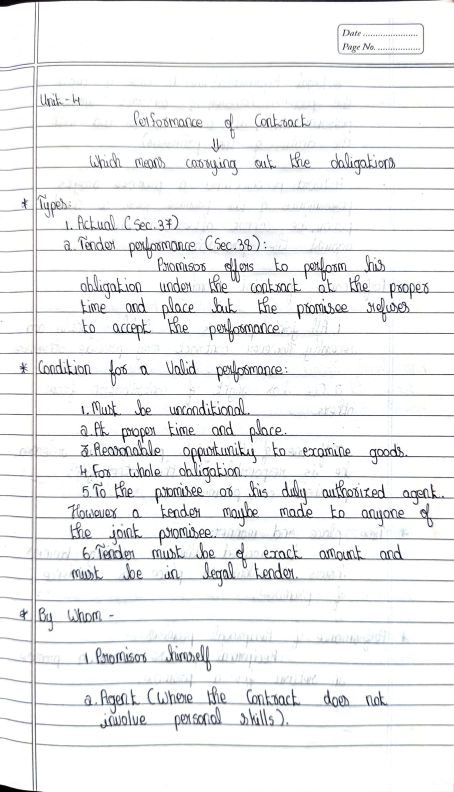 Date ......................
Page No. .................
Unit - 4
Performance of Contract
⇓
Which means carrying out the obligations
* Types:
1. Actual (Sec. 37)
2. Tender performance (Sec. 38):
Promisor offers to perform his
obligation under the contract at the proper
time and place but the promisee refuses
to accept the performance.
* Condition for a Valid performance:
1. Must be unconditional.
2. At proper time and place.
3. Reasonable opportunity to examine goods.
4. For whole obligation
5. To the promisee or his duly authorized agent.
However a tender maybe made to anyone of
the joint promisee.
6. Tender must be of exact amount and
must be in legal tender.
* By Whom -
1. Promisor himself
2. Agent (Where the Contract does not
involve personal skills).